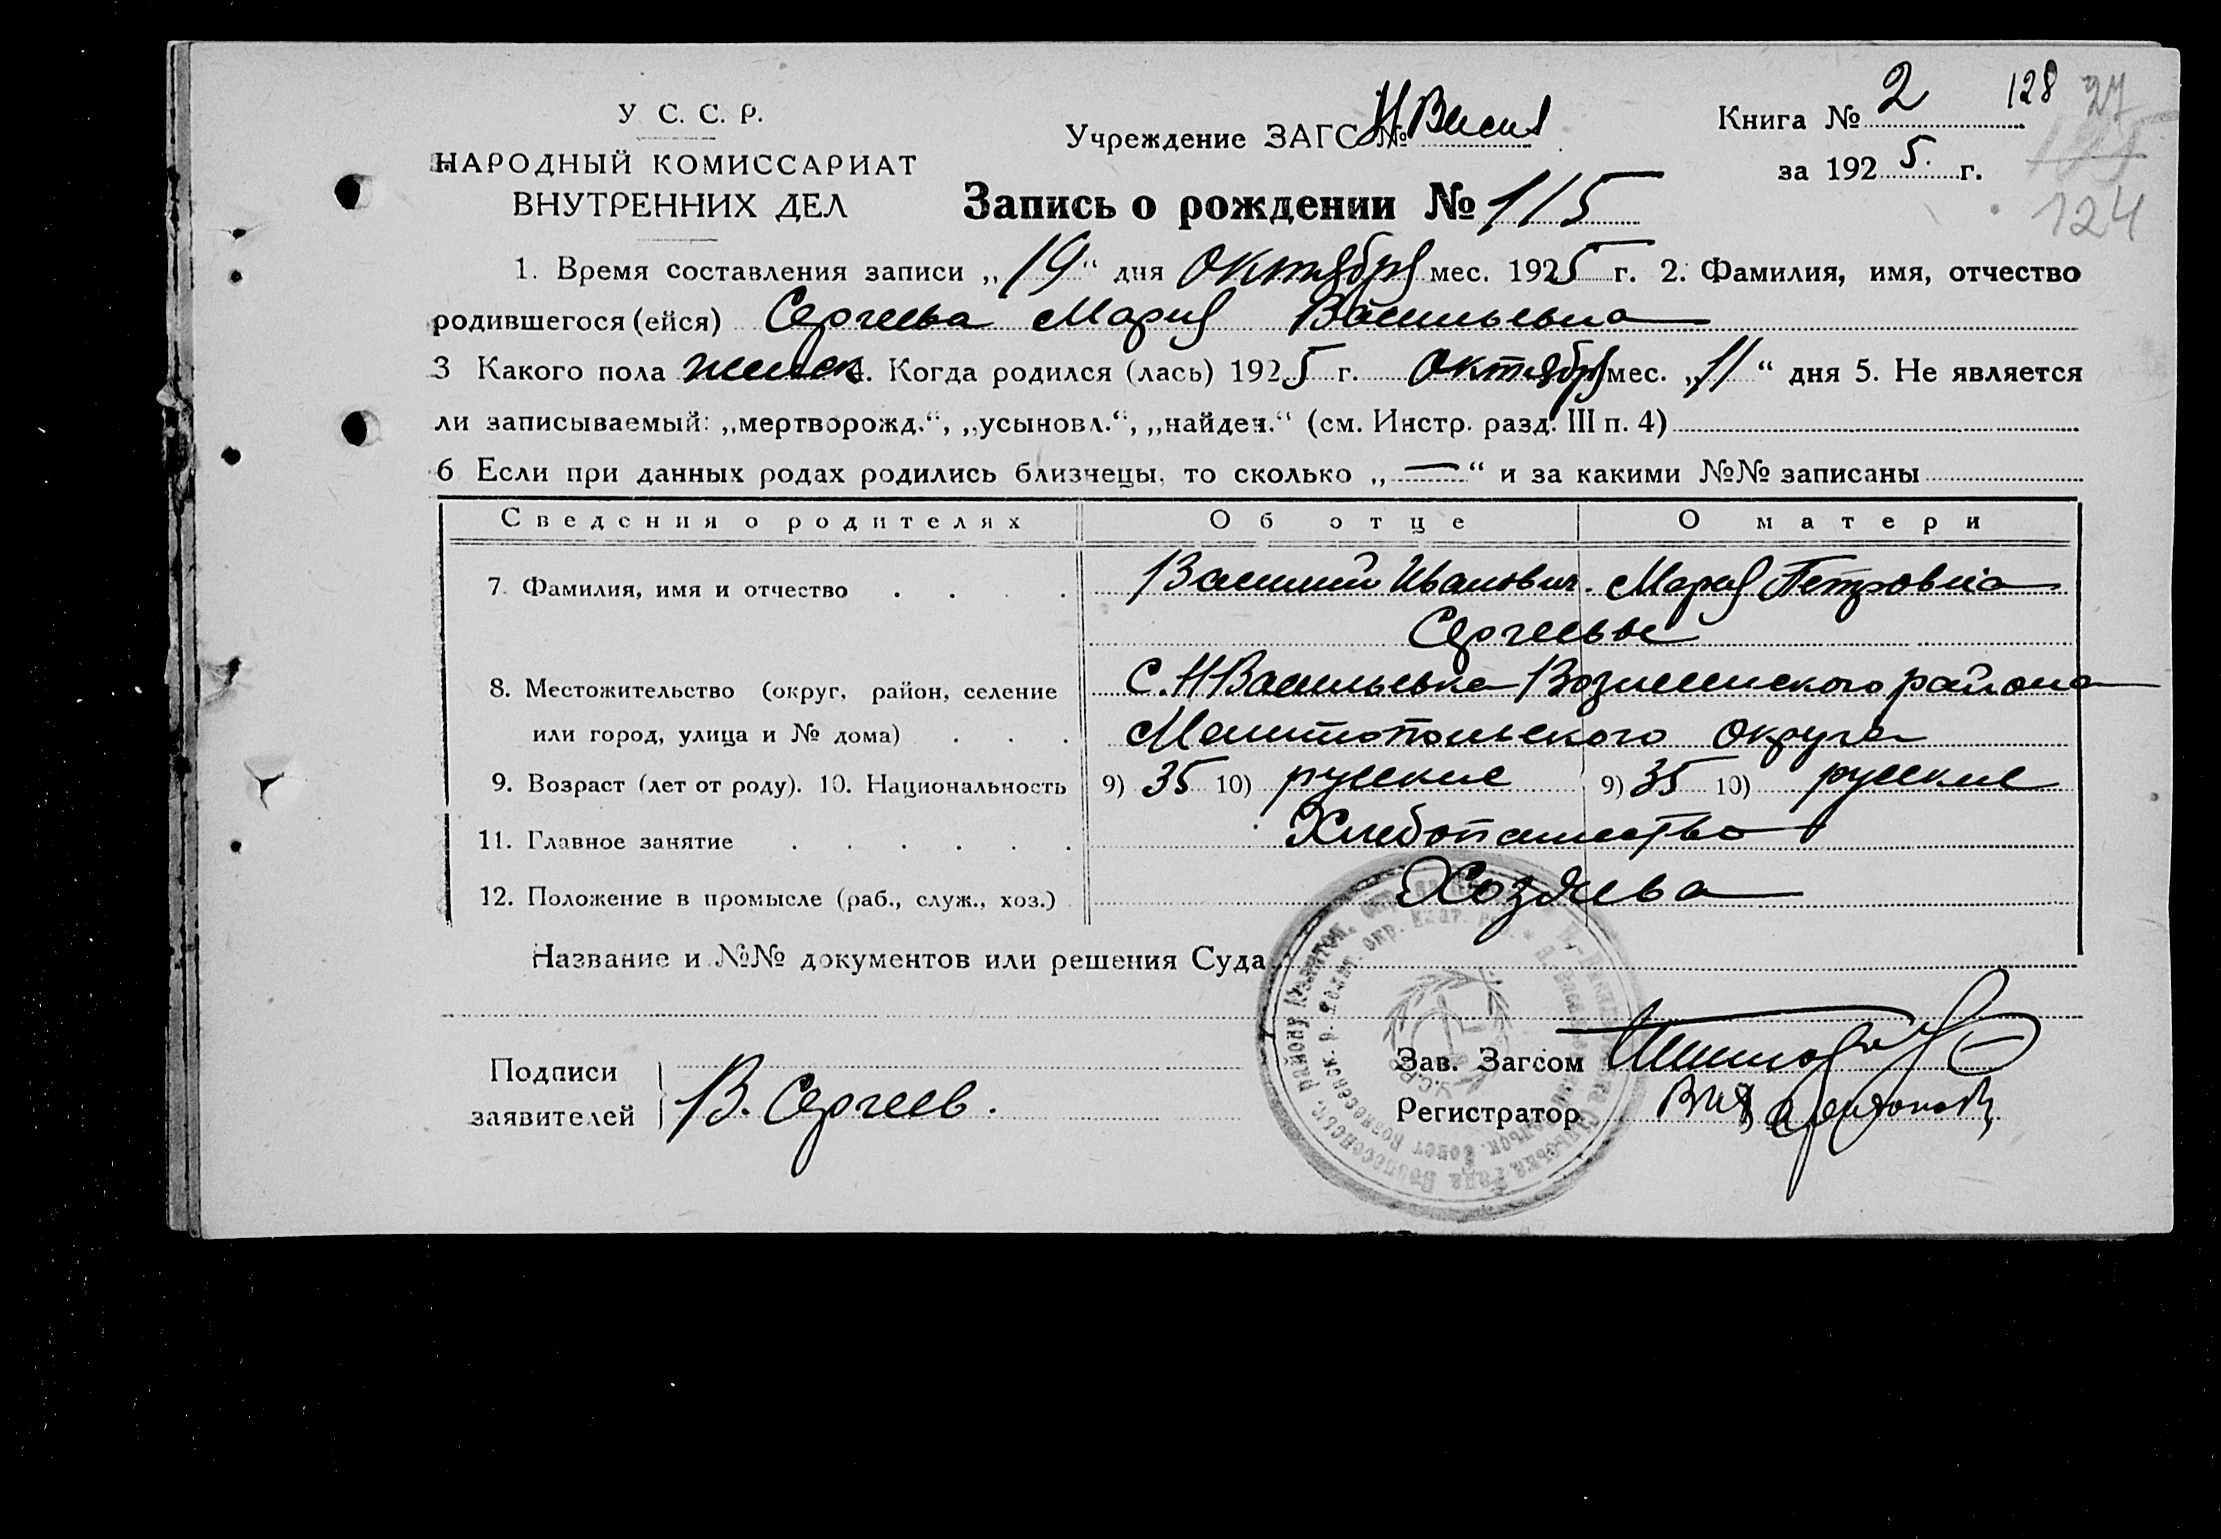 У. С. С. Р.
НАРОДНЫЙ КОМИССАРИАТ
ВНУТРЕННИХ ДЕЛ
Учреждение ЗАГС № Н Васил
Книга № 2
128
27
за 1925 г.
124
Запись о рождении № 115
1. Время составления записи „19“ дня Октября мес. 1925 г. 2. Фамилия, имя, отчество
родившегося (ейся) Сергеева Мария Васильевна
3 Какого пола женск 4. Когда родился (лась) 1925 г. Октября мес. „11“ дня 5. Не является
ли записываемый: „мертворожд.“, „усыновл.“, „найден.“ (см. Инстр. разд. III п. 4)
6 Если при данных родах родились близнецы, то сколько „—“ и за какими №№ записаны
Сведения о родителях Об отце О матери
7. Фамилия, имя и отчество . . . . Василий Иванович. Мария Петровна
Сергеевы
8. Местожительство (округ, район, селение С. Н Васильевка Вознесенского района
или город, улица и № дома) . . . Мелитопольского округа
9. Возраст (лет от роду). 10. Национальность 9) 35 10) русские 9) 35 10) русские
11. Главное занятие . . . . . . Хлебопашество
12. Положение в промысле (раб., служ., хоз.) Хозяева
Название и №№ документов или решения Суда
Подписи
заявителей В. Сергеев.
Зав. Загсом
Регистратор
У.С.Р.Р.